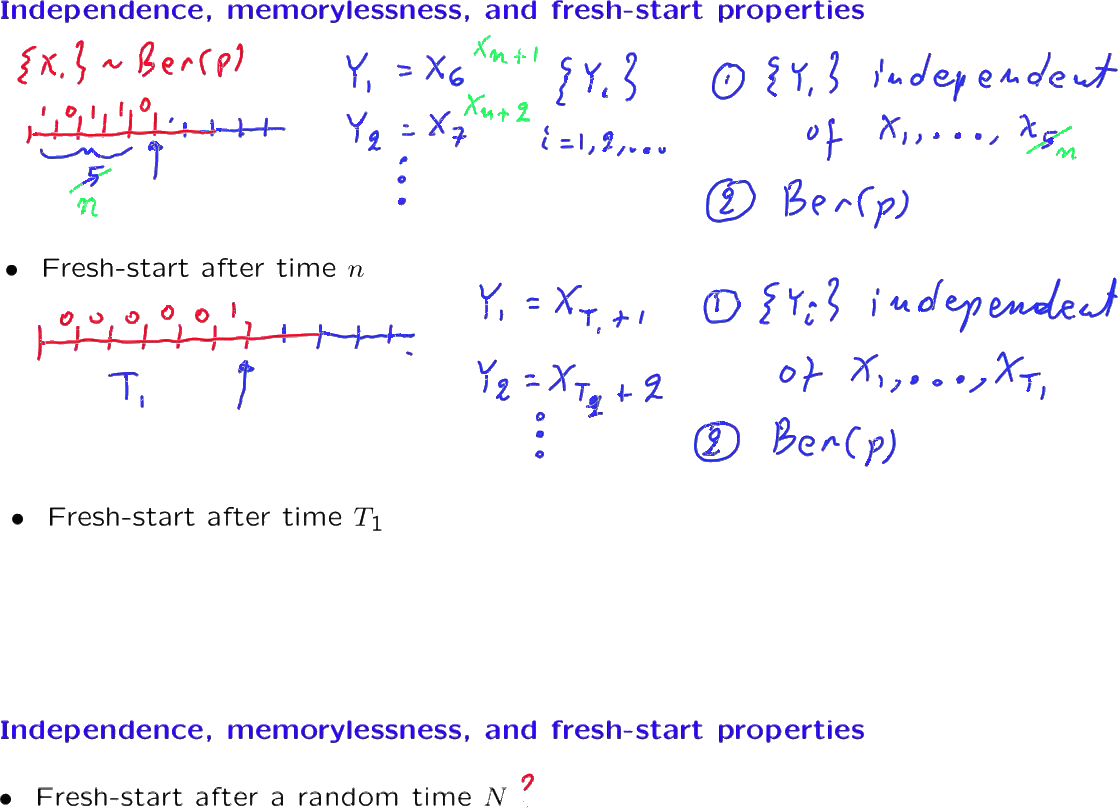 Independence, memorylessness, and fresh-start properties
{X.} ~ Ber(p)
1 0 1 1 0
5
n
Y1 = X6 Xn+1
Y2 = X7 Xn+2
{Yi}
i=1,2,...
① {Yi} independent
of X1,..., X5 n
② Ber(p)
• Fresh-start after time n
0 0 0 0 0 1
T1
Y1 = XT1+1
Y2 = XT2+2
① {Yi} independent
of X1,...,XT1
② Ber(p)
• Fresh-start after time T1
Independence, memorylessness, and fresh-start properties
• Fresh-start after a random time N ?